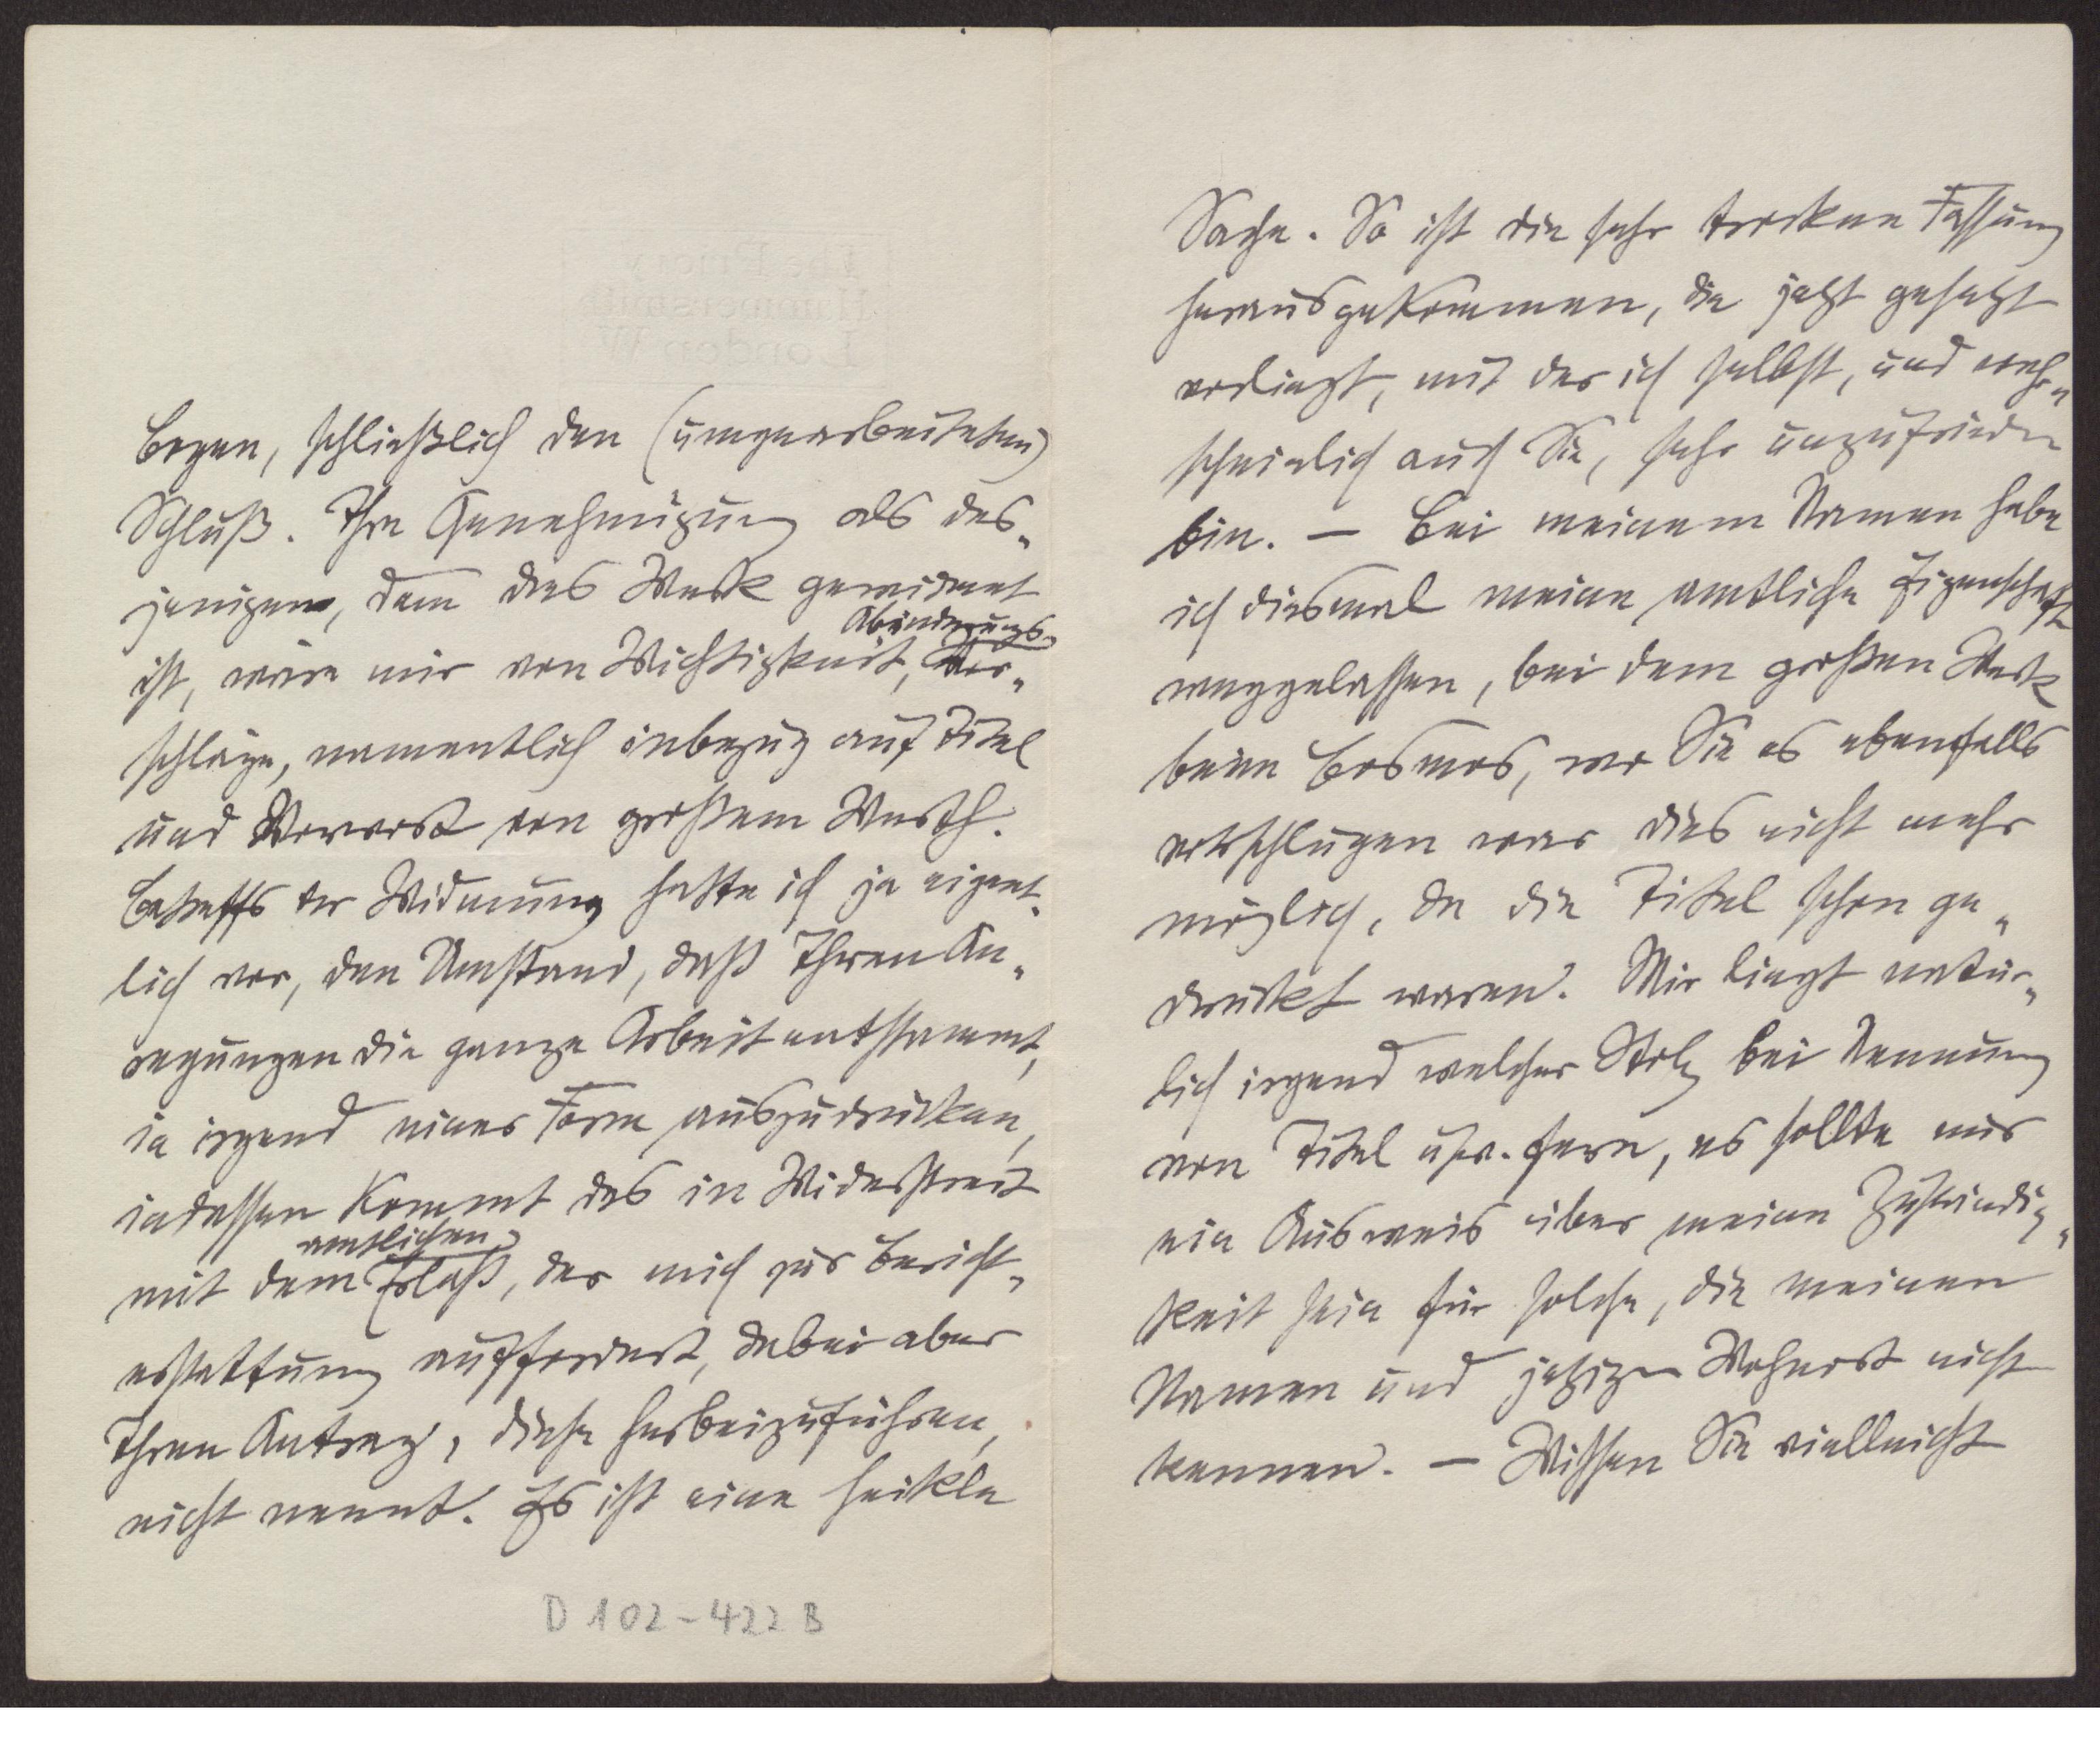 Bogen, schließlich den (umgearbeiteten)
Schluß. Ihre Genehmigung als des-
jenigen, dem das Werk gewidmet
ist, wäre mir von Wichtigkeit, Abänderungs-
vor-
schläge, namentlich inbezug auf Titel
und Vorwort von großem Werth.
Betreffs der Widmung hatte ich ja eigent-
lich vor, den Umstand, daß Ihren An-
regungen die ganze Arbeit entstammt,
in irgend einer Form auszudrücken,
indessen kommt das in Widerstreit
mit dem amtlichen Erlaß, der mich zur Bericht-
erstattung auffordert, dabei aber
Ihren Antrag, diese herbeizuführen,
nicht nennt. Es ist eine heikle
D 102-422 B
Sache. So ist die sehr trockene Fassung
herausgekommen, die jetzt gesetzt
vorliegt, mit der ich selbst, und wahr-
scheinlich auch Sie, sehr unzufrieden
bin. — Bei meinem Namen habe
ich diesmal meine amtliche Eigenschaft
weggelassen, bei dem großen Werk
beim Cosmos, wo Sie es ebenfalls
vorschlugen war dies nicht mehr
möglich, da die Titel schon ge-
druckt waren. Mir liegt natür-
lich irgend welcher Stolz bei Nennung
von Titel usw. fern, es sollte nur
ein Ausweis über meine Zuständig-
keit sein für solche, die meinen
Namen und jetzigen Wohnort nicht
kennen. — Wissen Sie vielleicht
The Priory
Hammersmith
London W